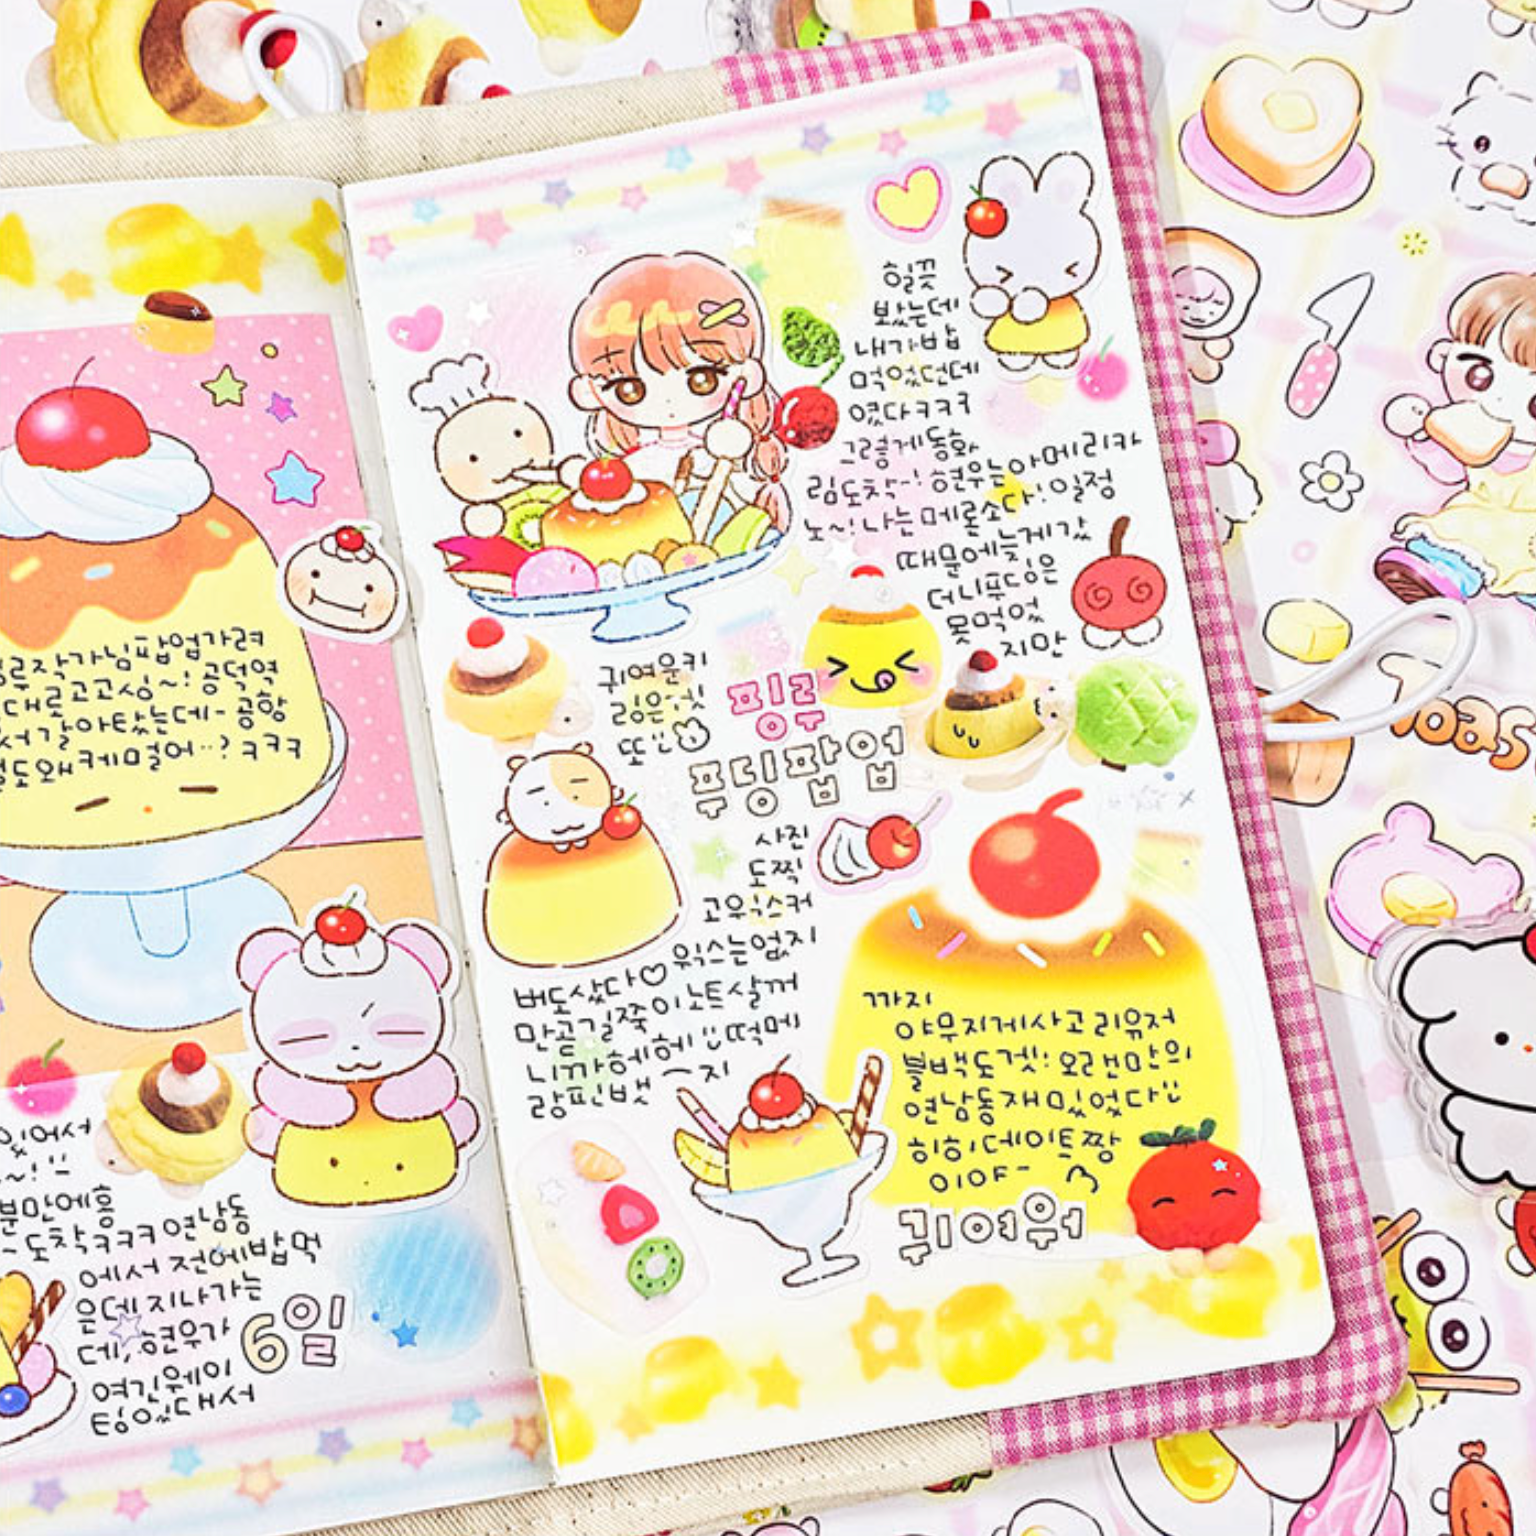 작가님팝업가려
대로고고싱~! 공덕역
서갈아탔는데- 공항
도왜케멀어..? ㅋㅋㅋ
있어서
~!
분만에홍
도착ㅋㅋㅋ연남동
에서 전에밥먹
은데 지나가는
데, 현우가
여긴웨이
팅있대서
6일
힐끗
봤는데
내가밥
먹었던데
였다ㅋㅋㅋ
그렇게동화
림도착~! 현우는아메리카
노~! 나는메론소다! 일정
때문에늦게갔
더니푸딩은
못먹었
지만
귀여운키
링은
또
핑루
푸딩팝업
사진
도찍
고우식스커
버도샀다♡ 윅스는없지
만곧길쭉이노트살꺼
니까헤헤 떡메
랑핀뱃지
까지
야무지게사고리유저
블백도겟! 오랜만의
연남동재밌었다
히히데이트짱
이야~
귀여워
Toast